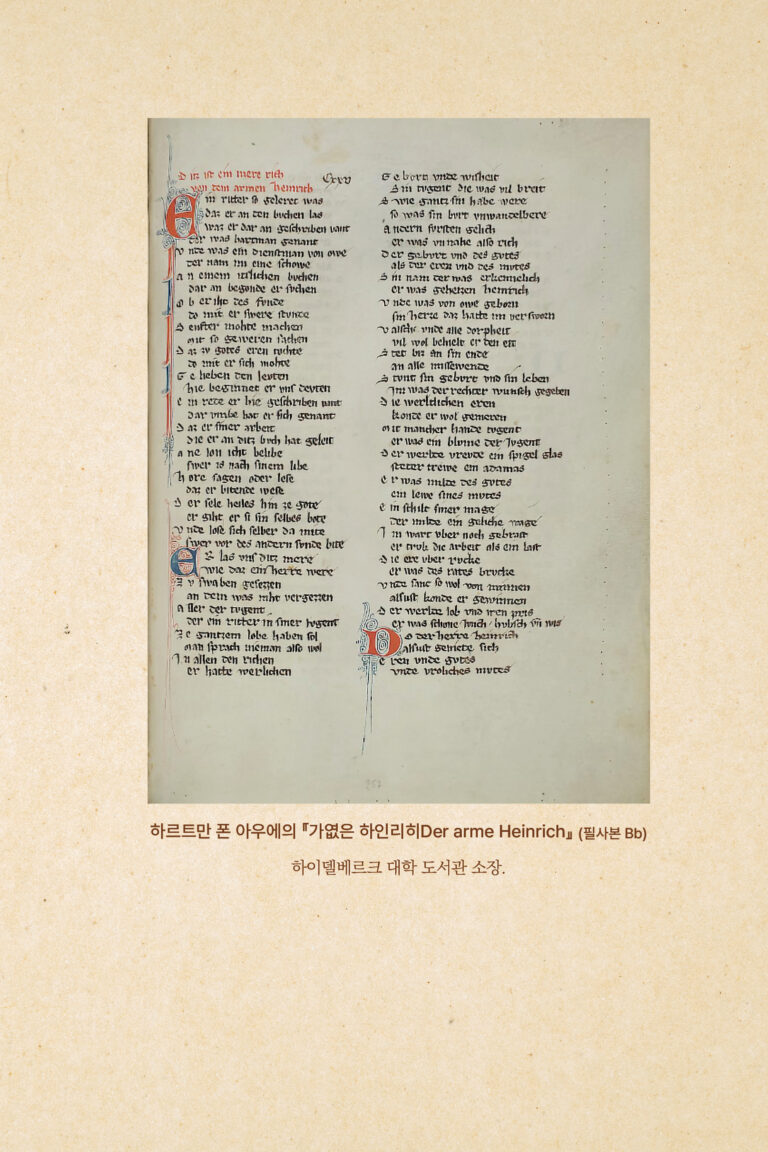 D itz ist ein mere rich
von dem armen heinrich
Cxxv
Ein ritter so geleret was
daz er an den buchen las
waz er dar an geschriben vant
der was hartman genant
v nde was ein dienstman von owe
der nam im eine schowe
a n einem buchen
dar an begonde er suchen
o b er iht des funde
do mit er swere stunde
S enfter mohte machen
mit so geweren sachen
D az zv gotes eren tochte
do mit er sich mohte
G e lieben den levten
hie beginnet er vns devten
e in rede er hie geschriben vant
dar vmbe hat er sich genant
D az er siner arbeit
die er an ditz bvch hat geleit
a ne lon iht belibe
swer is nach sinem libe
h ore sagen oder lese
daz er bitende wese
D er sele heiles hin ze gote
er giht er si sin selbes bote
v nde lose sich selber da mite
swer vor des andern sunde bite
Er las vns ditz mere
wie daz ein herre were
Z v swaben gesezzen
an dem was niht vergezzen
a ller der tvgent
der ein ritter in siner ivgent
Z e gantzem lobe haben sol
man sprach nieman also wol
I n allen den richen
er hatte werlichen
G ebort vnde wisheit
S in tvgent die was vil breit
S wie gantz sin habe were
so was sin burt vnwandelbere
a ndern fvrsten gelich
er was vil nahe also rich
D er gebvrt vnd des gvtes
als der eren vnd des mvtes
S in nam der was erkennelich
er was geheizen heinrich
v nde was von owe geborn
sin herre daz hatte im versworn
v alsche vnde alle dorpheit
vil wol behielt er den eit
S tet biz an sin ende
an alle missewende
S tvnt sin gebvrt vnd sin leben
Im was der rechter wunsch gegeben
D ie werltlichen eren
konde er wol gemeren
mit mancher hande tvgent
er was ein blvme der Ivgent
D er werlte vrevde ein spigel glas
steter trewe ein adamas
e r was milde des gvtes
ein lewe sines mvtes
e in schilt siner mage
der milde ein geliche wage
I m wart vber noch gebrast
er trvk die arbeit als ein last
D ie ere vber rvcke
er was des rates brvcke
v nde sanc so wol von minnen
alsust konde er gewinnen
D er werlde lob vnd iren pris
er was schone hvbsch vn wis
Do der herre heinrich
alsust geniete sich
e ren vnde gvtes
vnde vroliches mvtes
하르트만 폰 아우에의 『가엾은 하인리히Der arme Heinrich』 (필사본 Bb)
하이델베르크 대학 도서관 소장.